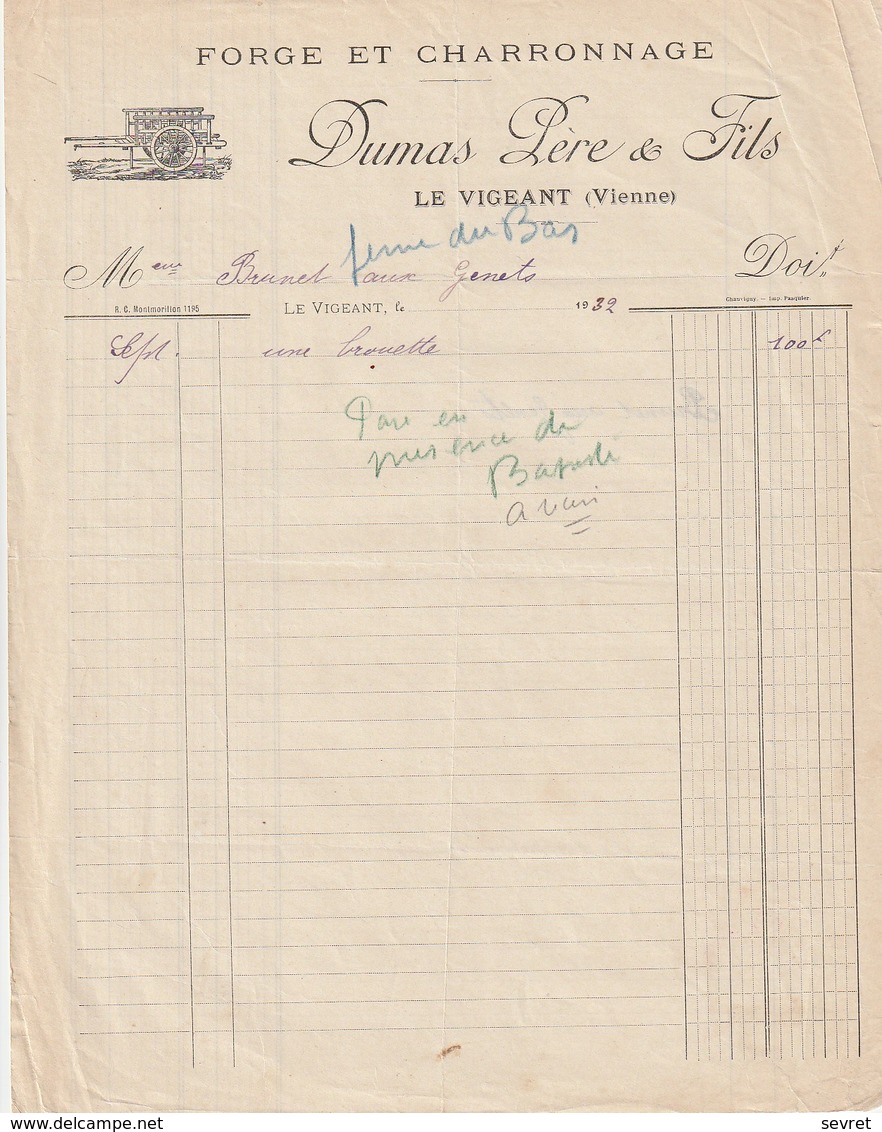 FORGE ET CHARRONNAGE
Dumas Père & Fils
LE VIGEANT (Vienne)
ferme du Bas
Meme Brunet aux Genets Doit
R. C. Montmorillon 1195
LE VIGEANT, le 1932
Chauvigny. — Imp. Pasquier.
Sept. une brouette 100f
en
presence de
delcampe.net
sevret